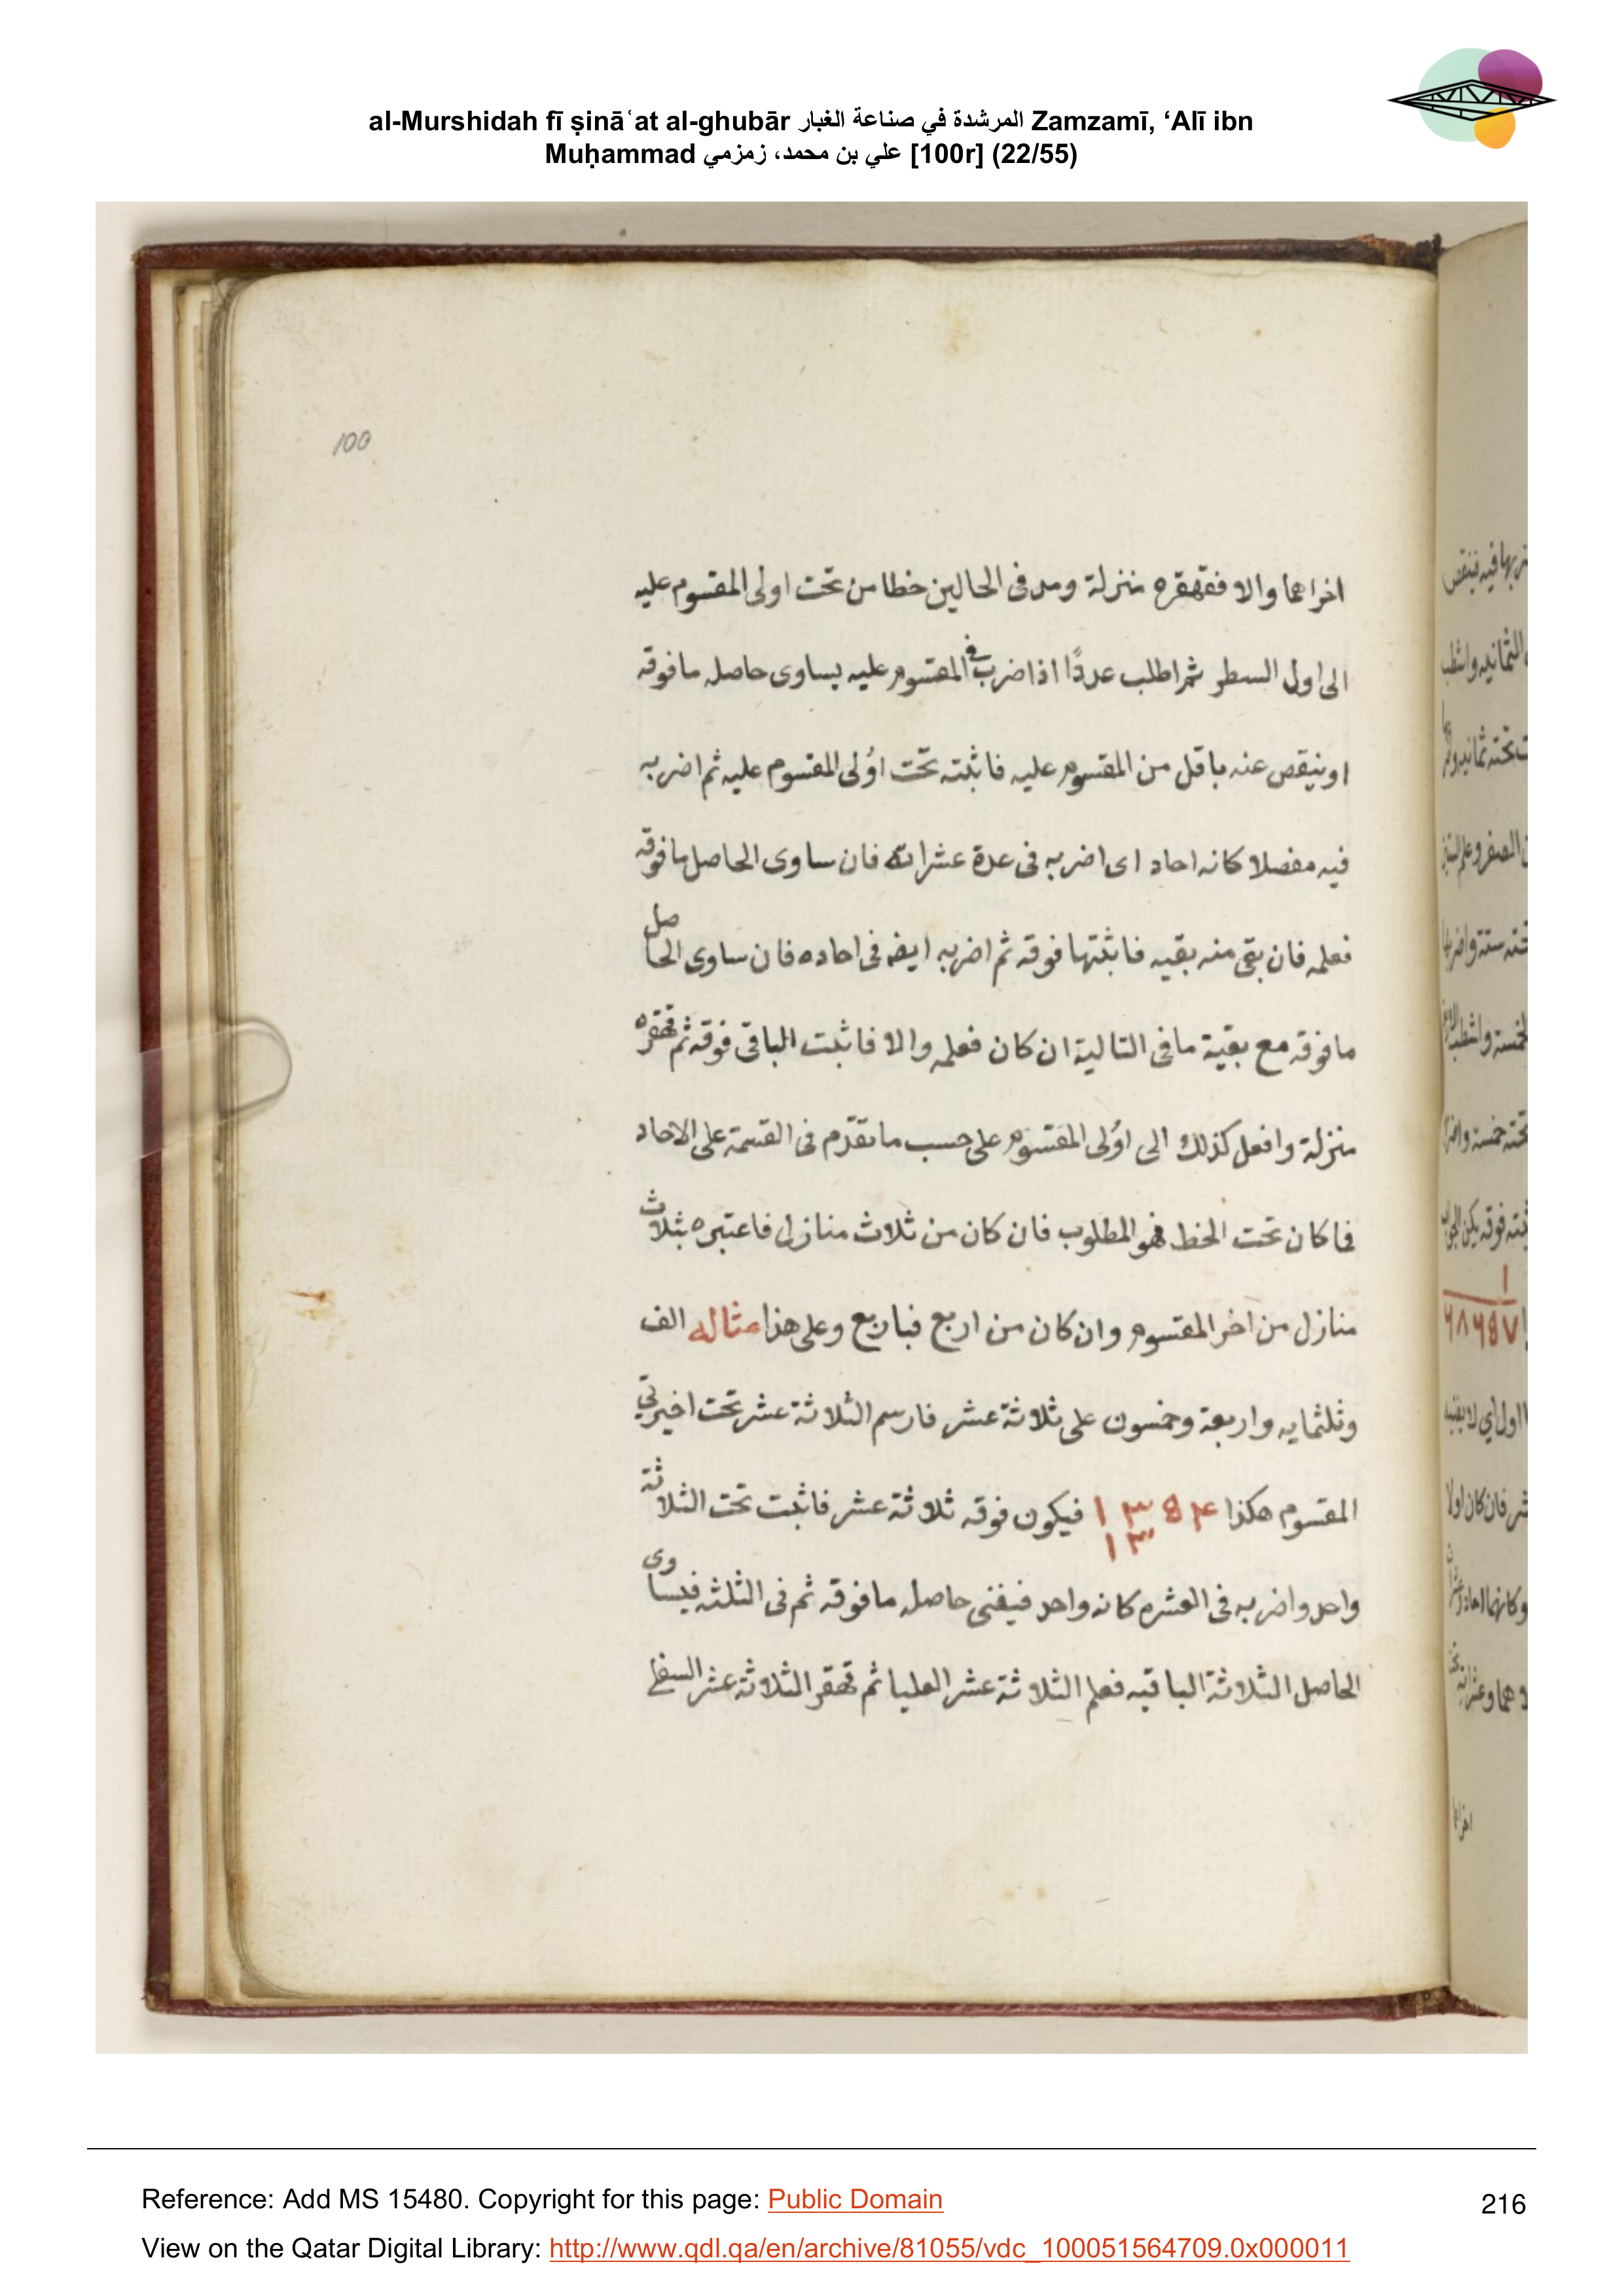 al-Murshidah fī ṣināʿat al-ghubār المرشدة في صناعة الغبار Zamzamī, ‘Alī ibn
Muḥammad علي بن محمد، زمزمي [100r] (22/55)
100
اخراهما والا فقهقره منزلة ومد فى الحالين خطا من تحت اولى المقسوم عليه
الى اول السطر ثم اطلب عددًا اذا ضرب فى المقسوم عليه يساوى حاصله ما فوقه
او ينقص عنه باقل من المقسوم عليه فاثبته تحت اوُلى المقسوم عليه ثم اضربه
فيه مفصلا كانه احاد اى اضربه فى عدة عشراته فان ساوى الحاصل ما فوقه
فعلمه فان بقى منه بقيه فاثبتها فوقه ثم اضربه ايضا فى احاده فان ساوى الحاصل
ما فوقه مع بقية ما فى التالية ان كان فعلمه والا فاثبت الباقى فوقه ثم قهقره
منزلة وافعل كذلك الى اوُلى المقسوم على حسب ما تقدّم فى القسمة على الاحاد
فما كان تحت الخط فهو المطلوب فان كان من ثلاث منازل فاعتبره بثلاث
منازل من اخر المقسوم وان كان من اربع فباربع وعلى هذا مثاله الف
وثلثمايه واربعة وخمسون على ثلاثة عشر فارسم الثلاثة عشر تحت اخيرتي
المقسوم هكذا ١٣٥٤ فيكون فوقه ثلاثة عشر فاثبت تحت الثلاثة
١٣
واحد واضربه فى العشره كانه واحد فيفنى حاصله ما فوقه ثم فى الثلثه فيساوى
الحاصل الثلاثة الباقيه فعلم الثلاثة عشر العليا ثم قهقر الثلاثة عشر السفلى
Reference: Add MS 15480. Copyright for this page: Public Domain
216
View on the Qatar Digital Library: http://www.qdl.qa/en/archive/81055/vdc_100051564709.0x000011